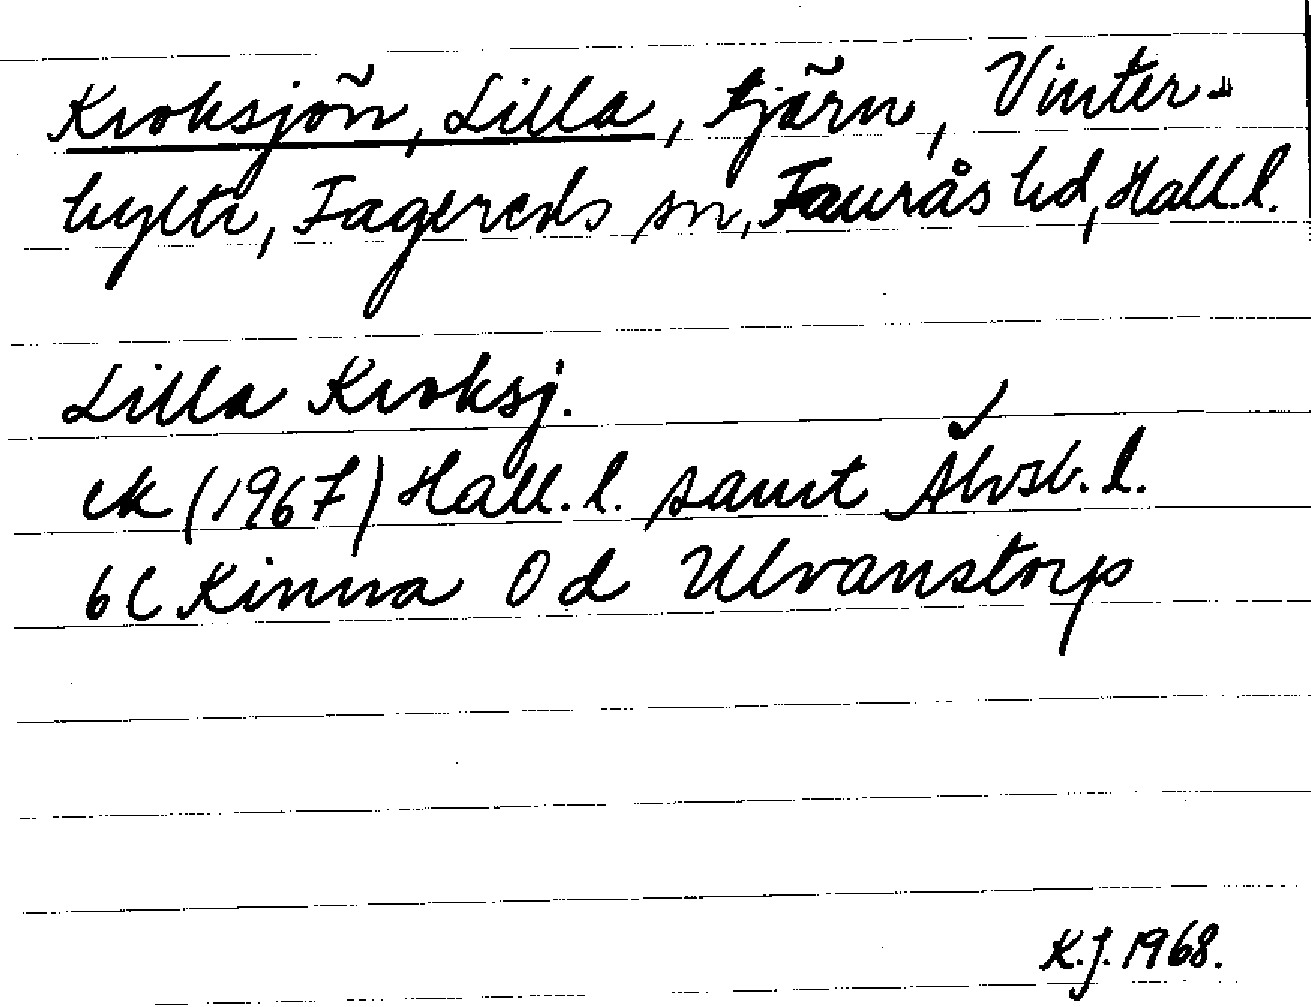 Kroksjön, Lilla, tjärn, Vinter-
hylte, Fagereds sn, Faurås hd, Hall.l.
Lilla Kroksj.
ek (1967) Hall. l. samt Älvsb. l.
6C Kinna 0 d Ulvanstorp
K.J. 1968.